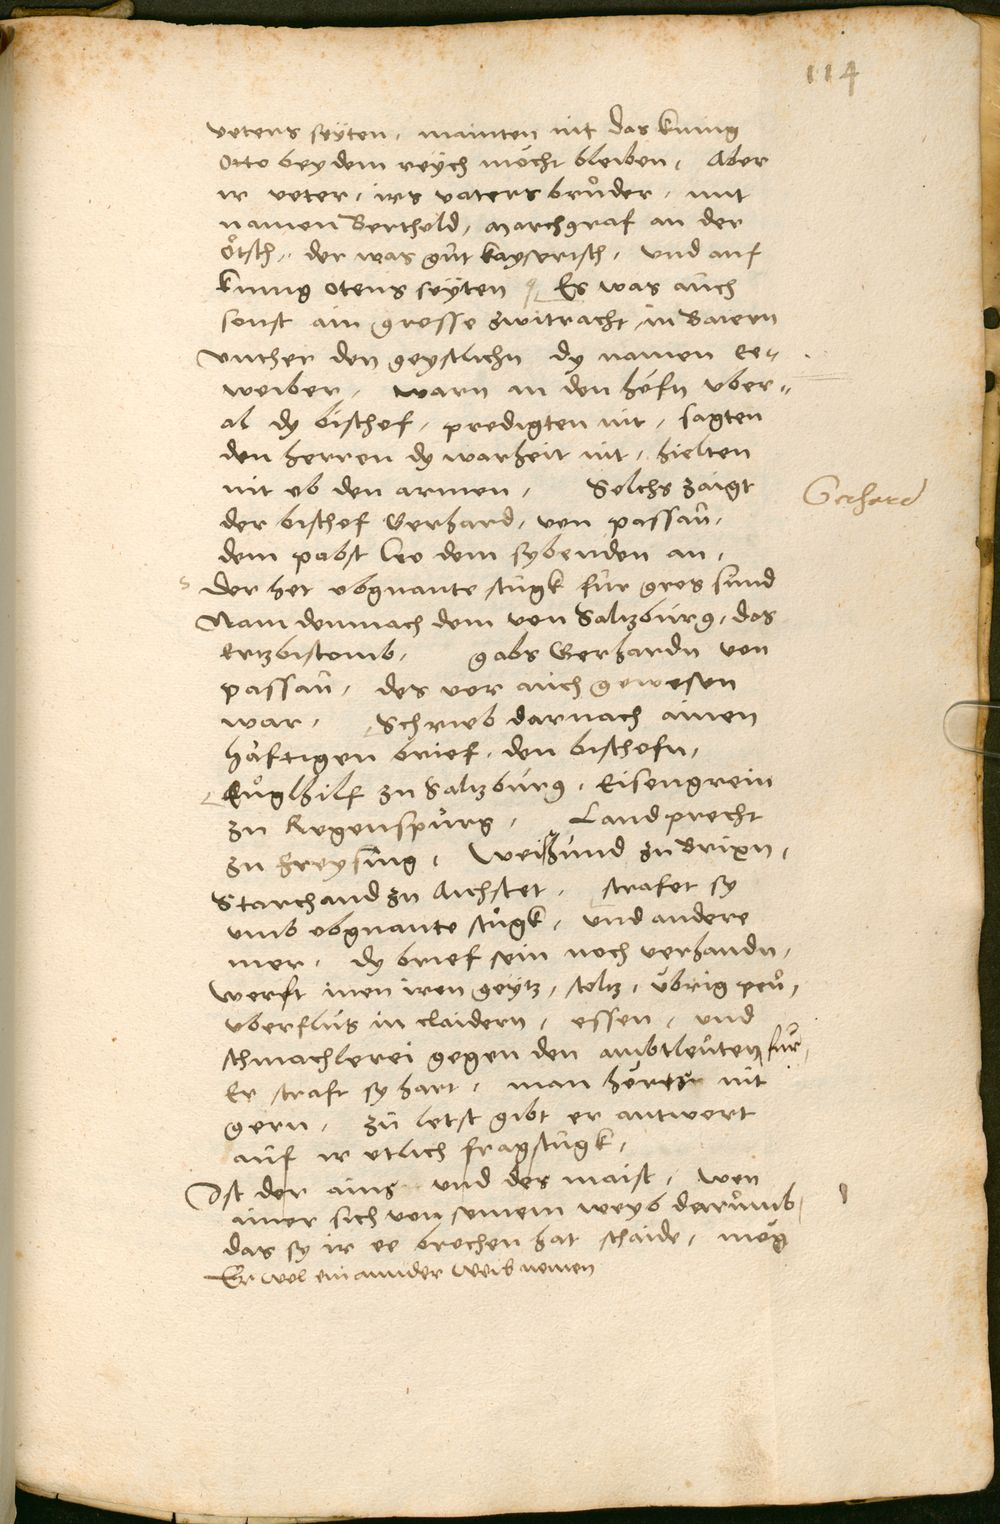 114
veters seyten, mainten nit das kunig
Otto bey dem reych möcht bleiben, Aber
ir veter, irs vaters brůder, mit
namen Berthold, Marchgraf an der
ötsch, der was gůt kayserisch, und auf
kunig otens seyten Es was auch
sonst ain grosse zwitracht in Baiern
vnther den geystlichn dy namen ee-
weiber, warn an den höfn vber-
al dy bischof, predigten nit, sagten
den herren dy warheit nit, hielten
nit ob den armen, Solchs zaigt
Gerhard
der bischof Gerhard, von passau,
dem pabst Leo dem sybenden an,
Der het obgnante stugk für gros sund
Nam demnach dem von Saltzburg, das
ertzbistomb, gabs Gerhardn von
passau, des vor auch gewesen
war, Schrieb darnach ainen
häftigen brief, den bischofn,
Eůglhilf zu Saltzburg, Eisengrein
zu Regenspurg, Landprecht
zu Freysing, Weisund zu Brixn,
Starchand zu Aichstet, strafet sy
umb obgnante stugk, und andere
mer, dy brief sein noch verhandn,
werft inen iren geytz, stoltz, übrig
vberflus in claidern, essen, und
schmachlerei gegen den ambtleuten für,
Er straft sy hart, man höret nit
gern, zu letst gibt er antwort
auf ir etlich fragstugk,
Ist der ains und des maist, wen
ainer sich von seinem weyb darumb
das sy ir ee brochen hat schaide, mög
Er wol ein annder weib nemen